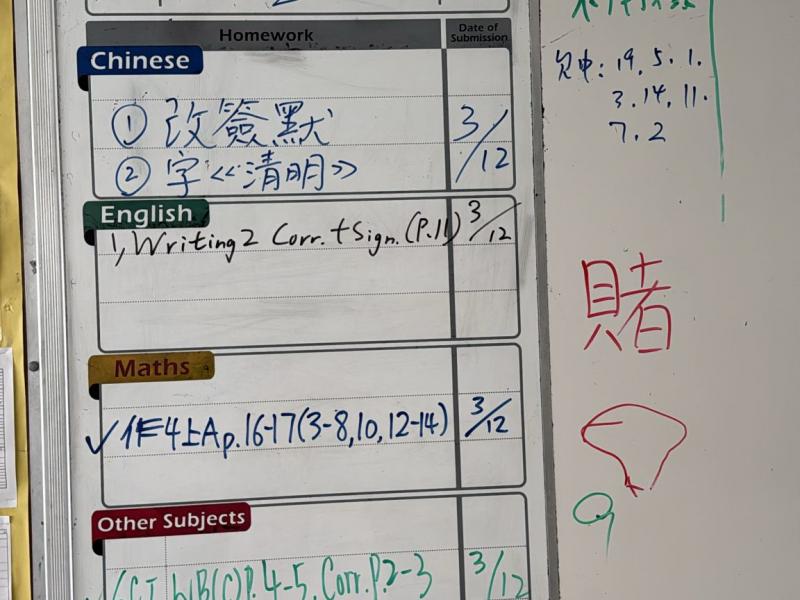 Homework
Date of Submission
Chinese
① 改簽默
3/12
② 字《清明》
English
1, Writing 2 Corr. + Sign. (P.11)
3/12
Maths
✓ 作4上A p.16-17(3-8,10,12-14)
3/12
Other Subjects
P.4-5, Corr.P.2-3
3/12
欠中: 19. 5. 1.
3. 14. 11.
7. 2
賭